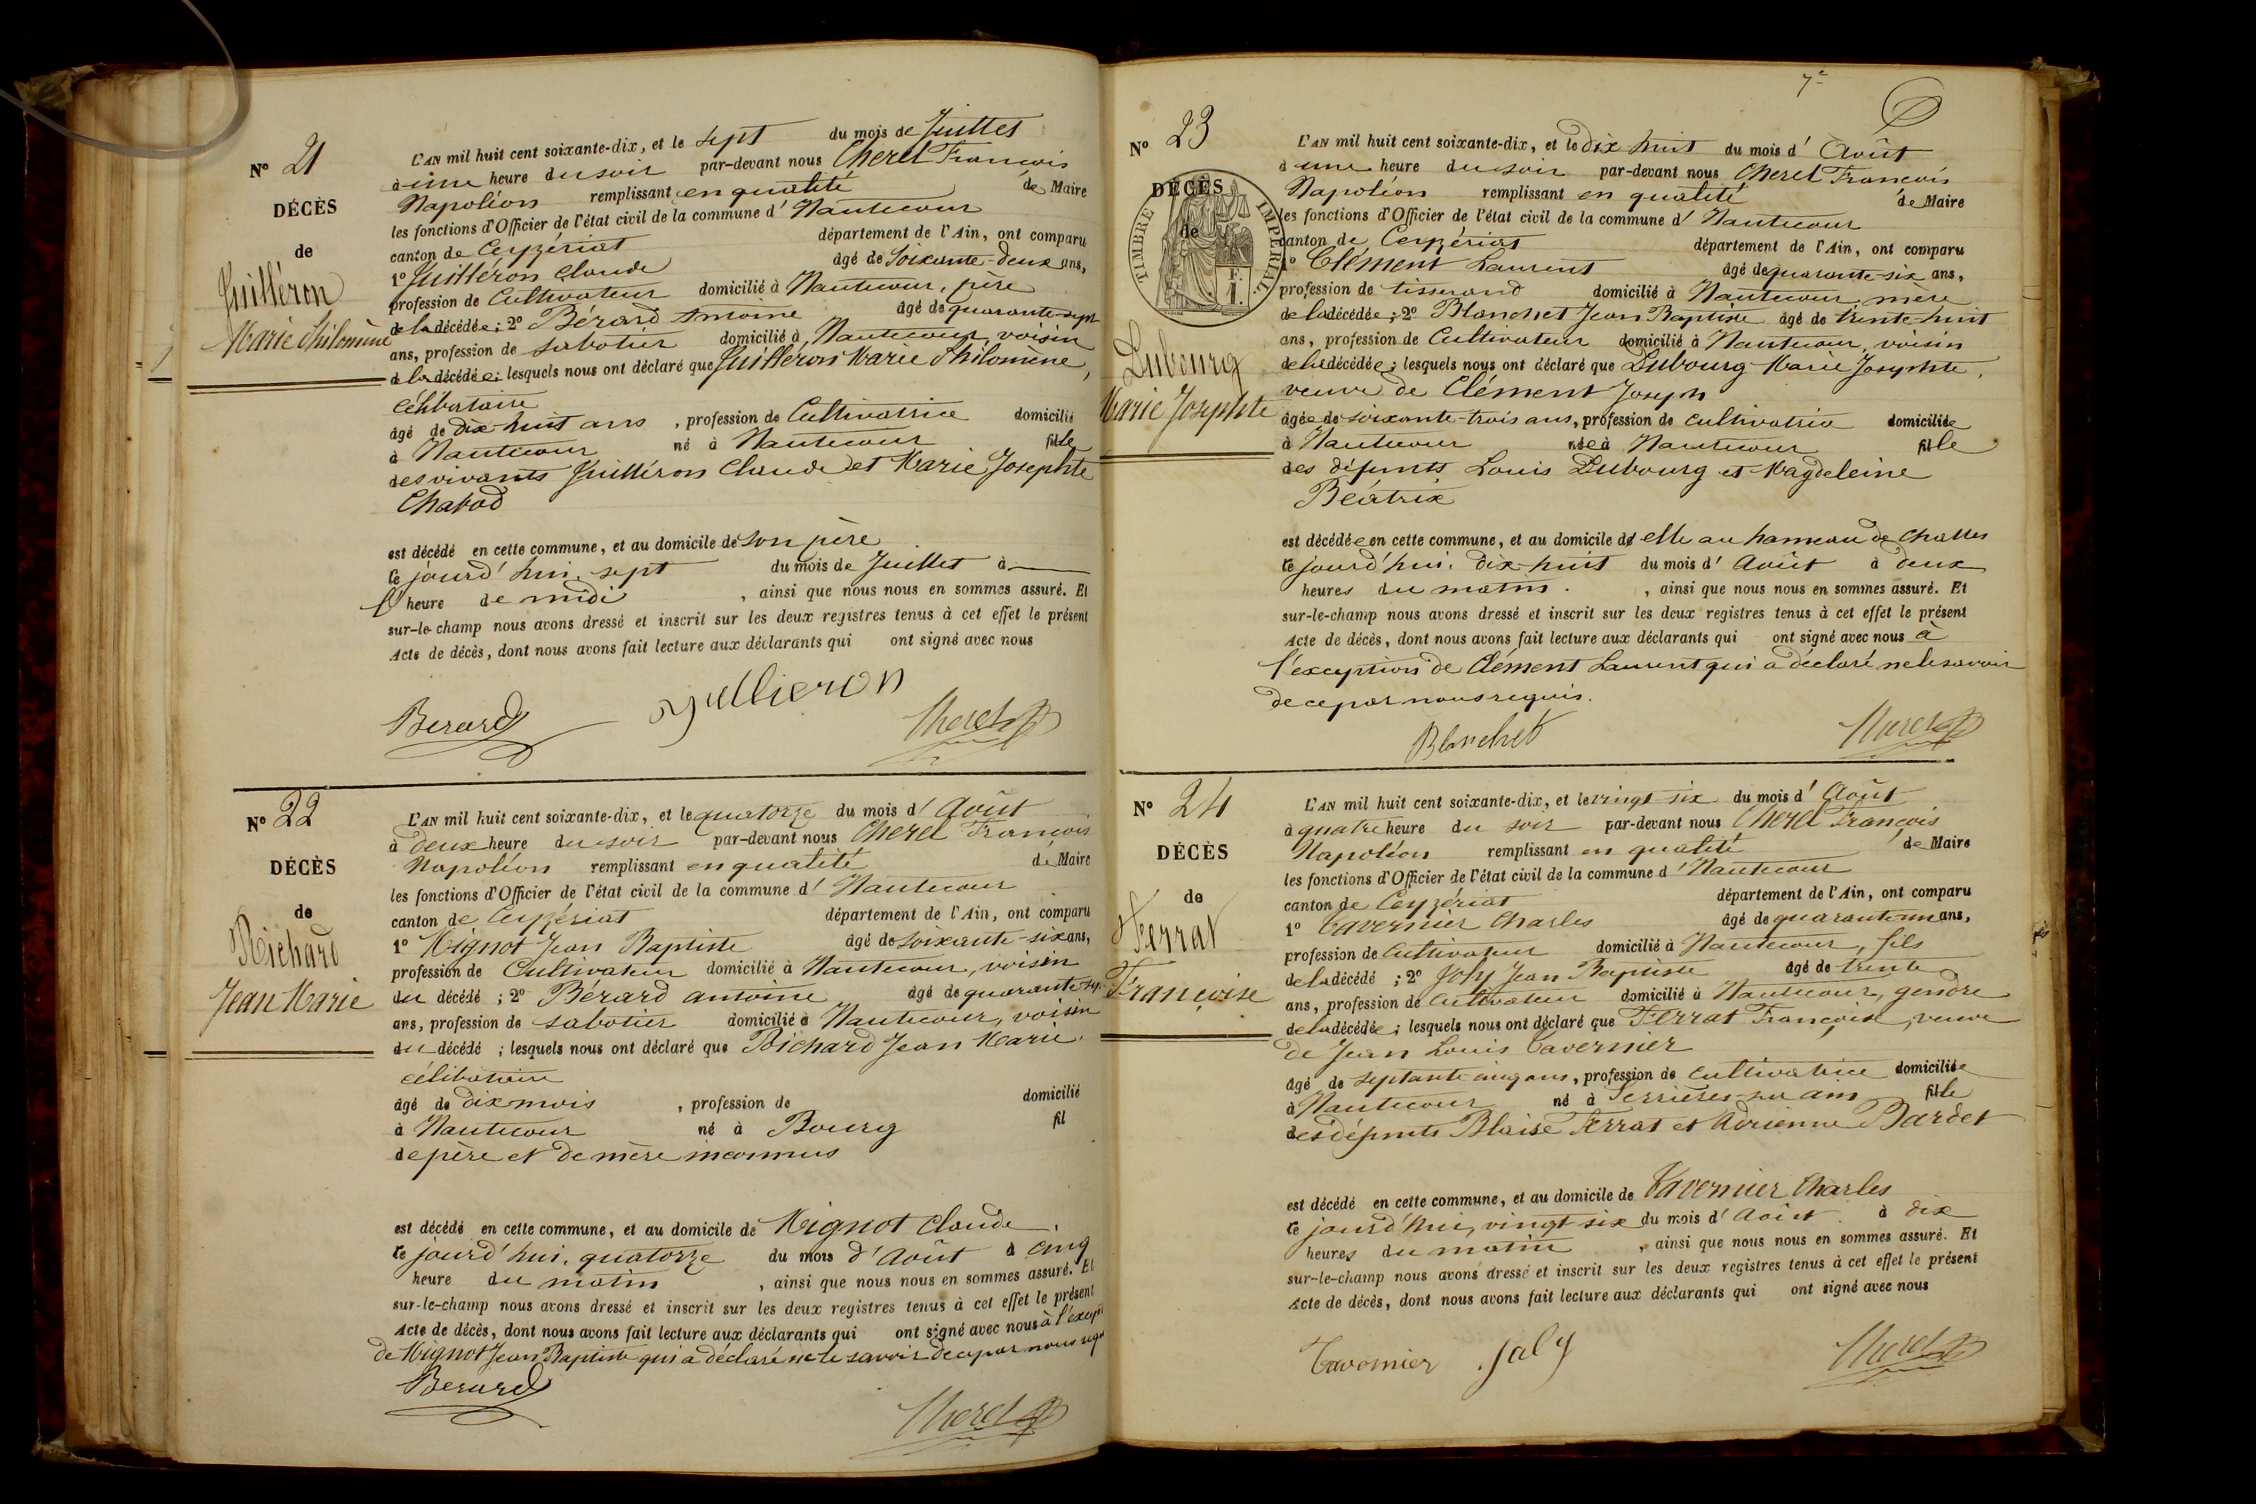 N° 21
DÉCÈS
de
Guilléron
Marie Philomène
L'AN mil huit cent soixante-dix, et le sept du mois de Juillet
à une heure du soir par-devant nous Cherel François
Napoléon remplissant en qualité de Maire
les fonctions d'Officier de l'état civil de la commune d' Hautecour
canton de Ceyzériat département de l'Ain, ont comparu
1° Guilléron Claude âgé de Soixante-deux ans,
profession de Cultivateur domicilié à Hautecour, père
de la décédée; 2° Bérard Antoine âgé de quarante-sept
ans, profession de sabotier domicilié à Hautecour, voisin
de la décédée; lesquels nous ont déclaré que Guilléron Marie Philomène,
célibataire
âgé de dix-huit ans, profession de Cultivatrice domicilié
à Hautecour né à Hautecour fille
des vivants Guilléron Claude et Marie Josephte
Chabod
est décédé en cette commune, et au domicile de son père
ce jourd'hui, sept du mois de Juillet à
l'heure de midi, ainsi que nous nous en sommes assuré. Et
sur-le-champ nous avons dressé et inscrit sur les deux registres tenus à cet effet le présent
Acte de décès, dont nous avons fait lecture aux déclarants qui ont signé avec nous
Berard Cherel
N° 22
DÉCÈS
de
Richard
Jean Marie
L'AN mil huit cent soixante-dix, et le quatorze du mois d' Août
à deux heure du soir par-devant nous Cherel François
Napoléon remplissant en qualité de Maire
les fonctions d'Officier de l'état civil de la commune d' Hautecour
canton de Ceyzériat département de l'Ain, ont comparu
1° Mignot Jean Baptiste âgé de soixante-six ans,
profession de Cultivateur domicilié à Hautecour, voisin
du décédé; 2° Bérard antoine âgé de quarante-sept
ans, profession de sabotier domicilié à Hautecour, voisin
du décédé; lesquels nous ont déclaré que Richard Jean Marie,
célibataire
âgé de dix mois, profession de domicilié
à Hautecour né à Bourg fil
de père et de mère inconnus
est décédé en cette commune, et au domicile de Mignot Claude,
ce jourd'hui, quatorze du mois d'Août à cinq
heure du matin, ainsi que nous nous en sommes assuré. Et
sur-le-champ nous avons dressé et inscrit sur les deux registres tenus à cet effet le présent
Acte de décès, dont nous avons fait lecture aux déclarants qui ont signé avec nous à l'excep
de Mignot Jean Baptiste qui a déclaré ne le savoir de ce par nous
Berard
Cherel
7e
N° 23
DÉCÈS
de
TIMBRE IMPÉRIAL
Dubourg
Marie Josephte
L'AN mil huit cent soixante-dix, et le dix huit du mois d' Août
à une heure du soir par-devant nous Cherel François
Napoléon remplissant en qualité de Maire
les fonctions d'Officier de l'état civil de la commune d' Hautecour
canton de Ceyzériat département de l'Ain, ont comparu
1° Clément Laurent âgé de quarante-six ans,
profession de tisserand domicilié à Hautecour, mère
de la décédée; 2° Blanchet Jean Baptiste âgé de trente-huit
ans, profession de Cultivateur domicilié à Hautecour, voisin
de la décédée; lesquels nous ont déclaré que Dubourg Marie Josephte,
veuve de Clément Joseph
âgée de soixante-trois ans, profession de cultivatrice domiciliée
à Hautecour née à Hautecour fille
des défunts Louis Dubourg et Magdeleine
Béatrix
est décédée en cette commune, et au domicile d'elle au hameau de Challes
ce jourd'hui, dix-huit du mois d' Août à deux
heures du matin, ainsi que nous nous en sommes assuré. Et
sur-le-champ nous avons dressé et inscrit sur les deux registres tenus à cet effet le présent
Acte de décès, dont nous avons fait lecture aux déclarants qui ont signé avec nous à
l'exception de Clément Laurent qui a déclaré ne le savoir
de ce par nous requis.
Blanchet Cherel
N° 24
DÉCÈS
de
Ferrat
Françoise
L'AN mil huit cent soixante-dix, et le vingt-six du mois d' Août
à quatre heure du soir par-devant nous Cherel François
Napoléon remplissant en qualité de Maire
les fonctions d'Officier de l'état civil de la commune d' Hautecour
canton de Ceyzériat département de l'Ain, ont comparu
1° Tavernier Charles âgé de quarante un ans,
profession de Cultivateur domicilié à Hautecour, fils
de la décédé; 2° Joly Jean Baptiste âgé de trente
ans, profession de Cultivateur domicilié à Hautecour, gendre
de la décédée; lesquels nous ont déclaré que Ferrat Françoise, veuve
de Jean Louis Tavernier
âgé de septante cinq ans, profession de cultivatrice domiciliée
à Hautecour né à Serrières sur ain fille
des défunts Blaise Ferrat et Adrienne Bardet
est décédé en cette commune, et au domicile de Tavernier Charles
ce jourd'hui, vingt six du mois d' Août à dix
heures du matin, ainsi que nous nous en sommes assuré. Et
sur-le-champ nous avons dressé et inscrit sur les deux registres tenus à cet effet le présent
Acte de décès, dont nous avons fait lecture aux déclarants qui ont signé avec nous
Tavernier Joly Cherel